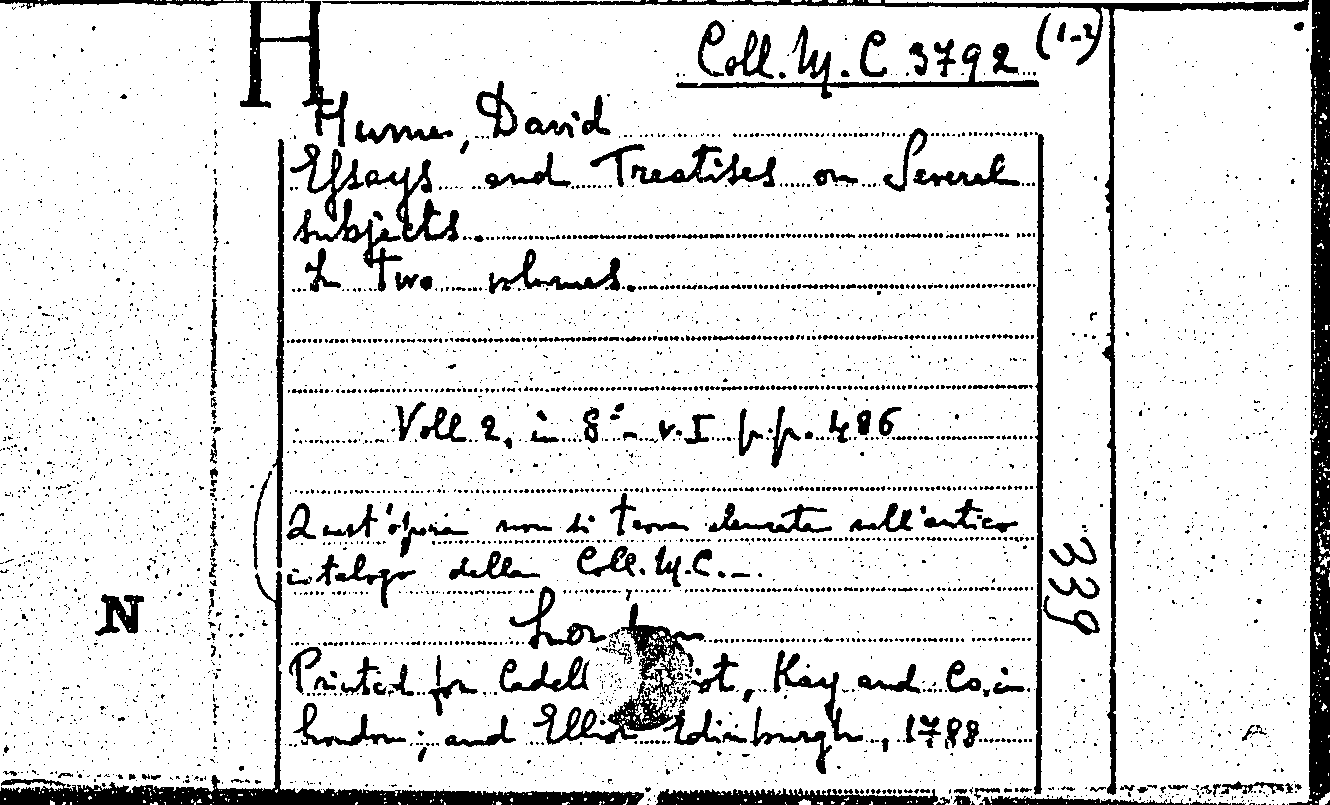 H
Coll. M. C 3792 (1-2)
Hume, David
Essays and Treatises on Several
subjects.
In two volumes.
Voll 2, in 8° - v. I p.p. 486
Quest'opera non si trova elencata nell'antico
catalogo della Coll. M.C. -.
339
N
London
Printed for Cadell ot, Kay and Co, in
London; and Elliot Edinburgh, 1788